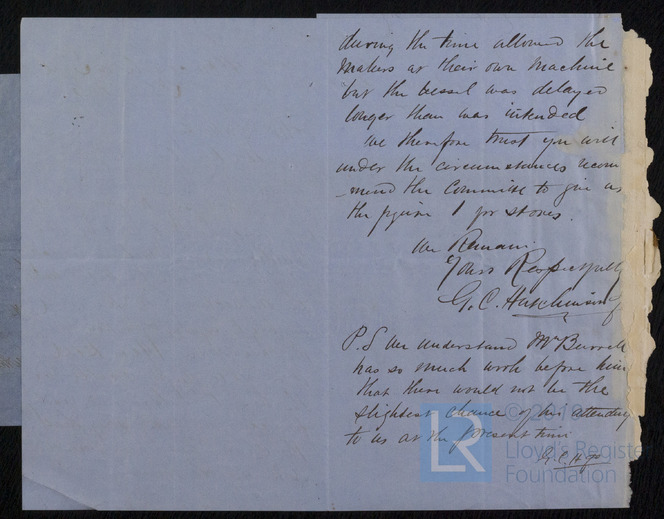 during the time allowed the
makers at their own machine
but the vessel was delayed
longer than was intended
we therefore trust you will
under the circumstances recom
-mend the Committee to give us
the figure 1 for stores.
We Remain
Yours Respectfully
G. C. Hutchinson
P.S We understand Mr Burrell
has so much work before him
that there would not be the
slightest chance of his attending
to us at the present time
G. C. H
LR
Lloyd's Register
Foundation